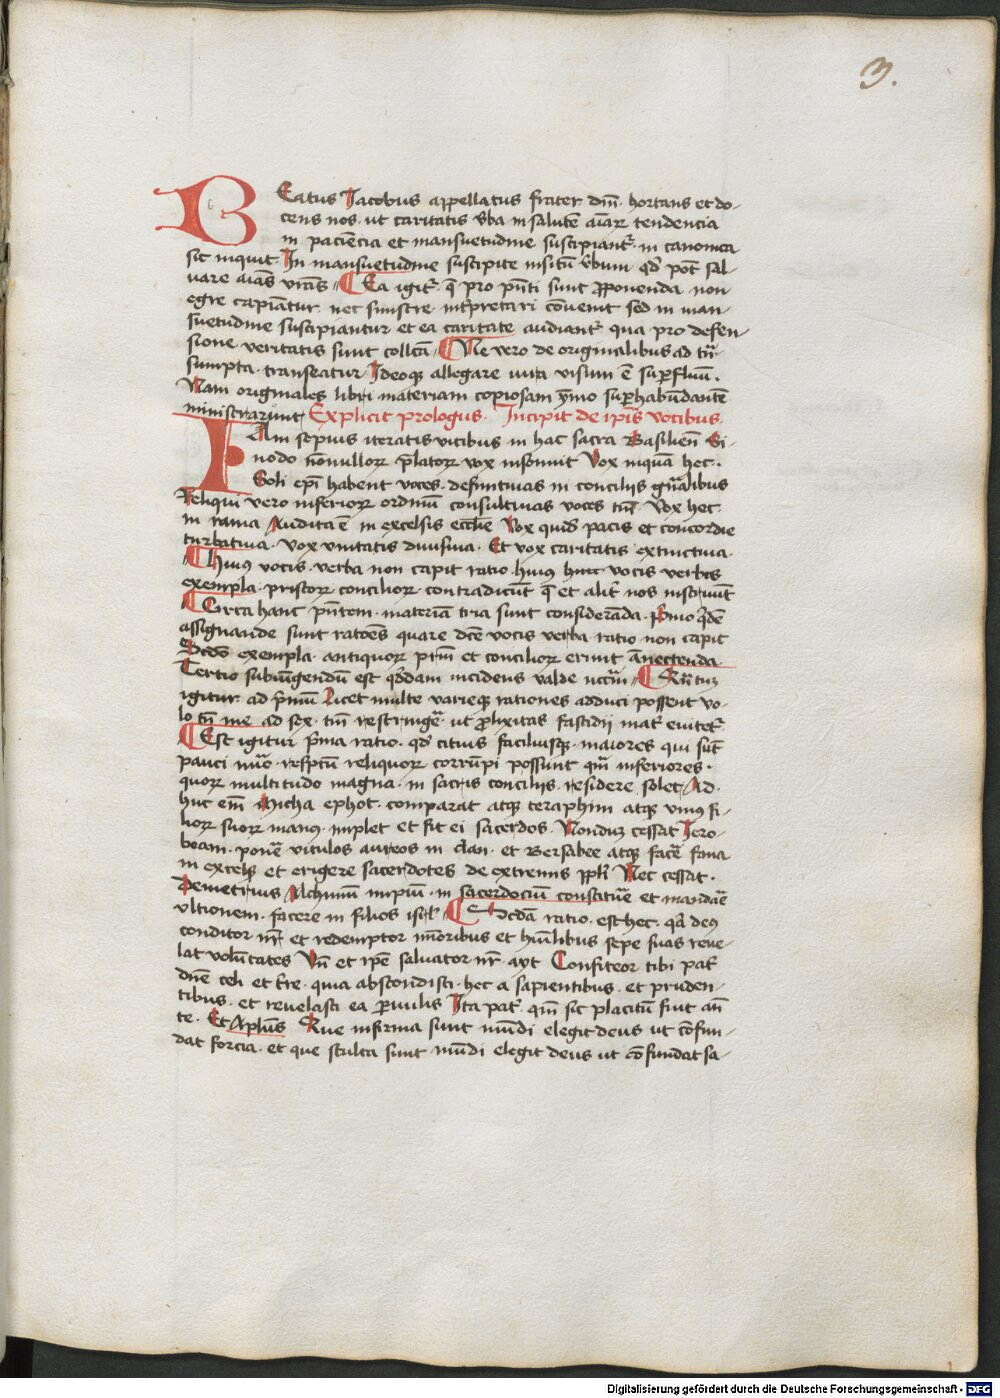 3.
BEatus Jacobus appellatus frater dm̄ hortans et do-
cens nos ut caritatis v̄ba in salutē aīaꝝ tendencia
in paciēcia et mansuetudine suscipiant᷑ in canonica
sic inquit In mansuetudine suscipite insitū v̄bum qd̄ pōt sal-
uare aīas vr̄as Ea igit᷑ q̄ pro pn̄ti sunt ꝓponenda non
egre capiāt᷑ur nec sinistre int᷑pretari cōuenit sed in man-
suetudine suscipiantur et ea caritate audiant᷑ qua pro defen-
sione veritatis sunt collc̄a Ne vero de originalibus ad tn̄-
sumpta transeatur Ideoqꝫ allegare iura visum ē suꝑfluū.
Nam originales libri materiam copiosam ymo suꝑhabūdantē
ministrarūnt Explicit prologus. Incipit de ip̄is vocibus.
IAm sepius iteratis vicibus in hac sacra Basilien̄ Si-
nodo nōnulloꝝ p̄latoꝝ vox insonuit Vox inquā hec.
Soli ep̄i habent voces definitiuas in conciliis gn̄alibus
Reliqui vero inferioꝝ ordinū consultiuas voces tm̄ Vox hec
in rama Audita ē in excelsis eccl̄ie Vox quid̄ pacis et concordie
turbatiua. vox vnitatis diuisiua. Et vox caritatis extinctiua.
Huius vocis verba non capit ratio huius vocis verbis
exempla priscoꝝ concilioꝝ contradicūt q̄ et alit᷑ nos instruūt
Circa hanc pn̄tem materiā tria sunt considerāda Pͥmo q̄dē
assignande sunt ratōes quare dc̄e vocis verba ratio non capit
Scd̄o exempla antiquoꝝ pr̄m et concilioꝝ erunt ānectenda
Tertio subiūgendū est q̄ddam incidens valde nccīū Quntuꝫ
igitur ad pͥmū Licet multe varieqꝫ rationes adduci possent vo-
lo tn̄ me ad sex tm̄ restringē ut ꝓlixitas fastidii mat᷑ euitet᷑
Est igitur pͥma ratio qd̄ citius faciliusqꝫ maiores qui sūt
pauci nūo respc̄tu reliquoꝝ corrūpi possunt qm̄ inferiores.
quoꝝ multitudo magna in sacris conciliis residere solet Ad-
huc em̄ Micha ephot comparat atqꝫ teraphim atqꝫ vnius fi-
lioꝝ suoꝝ manus implet et fit ei sacerdos. Nonduꝫ cessat Iero-
boam ponē vitulos aureos in dan et Bersabee atqꝫ facē fana
in excelsꝭ et erigere sacerdotes de extremis ppl̄i Nec cessat.
Demetrius Alchimū impiū in sacerdociū constituē et mandaē
vltionem facere in filios isrl̄ Scd̄a ratio est hec qꝛ deus
conditor nr̄ et redemptor mīoribus et hūilibus sepe suas reue-
lat volūtates Vn̄ et ip̄e saluator nr̄ ayt Confiteor tibi pat᷑
dn̄e celi et tr̄e quia abscondisti hec a sapientibus et pruden-
tibus et reuelasti ea ꝑuulis Ita pat᷑ qm̄ sic placitū fuit an̄
te. Et Aplūs Que infirma sunt mūdi elegit deus ut cōfun-
dat forcia et que stulta sunt mūdi elegit deus ut cōfundat sa-
Digitalisierung gefördert durch die Deutsche Forschungsgemeinschaft - DFG